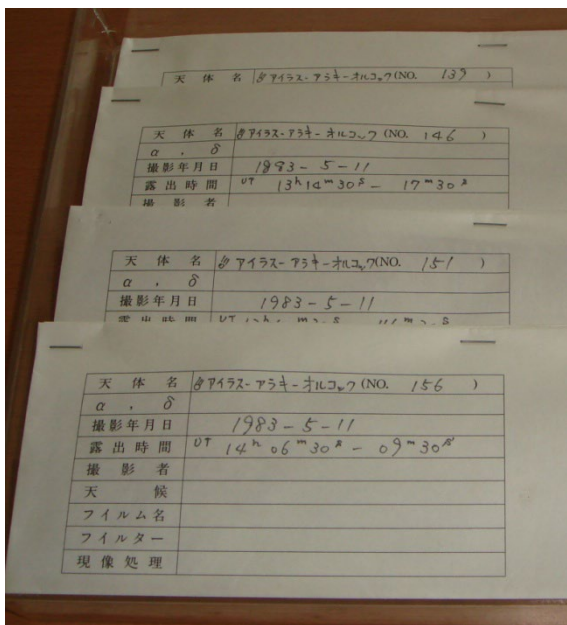 天 体 名 アイラス-アラキ-オルコック (NO. 139 )
天 体 名 アイラス-アラキ-オルコック (NO. 146 )
α , δ
撮影年月日 1983-5-11
露出時間 UT 13h 14m 30s - 17m 30s
撮 影 者
天 体 名 アイラス-アラキ-オルコック (NO. 151 )
α , δ
撮影年月日 1983-5-11
露出時間 UT
天 体 名 アイラス-アラキ-オルコック (NO. 156 )
α , δ
撮影年月日 1983-5-11
露出時間 UT 14h 06m 30s - 09m 30s
撮 影 者
天 候
フイルム名
フィルター
現像処理